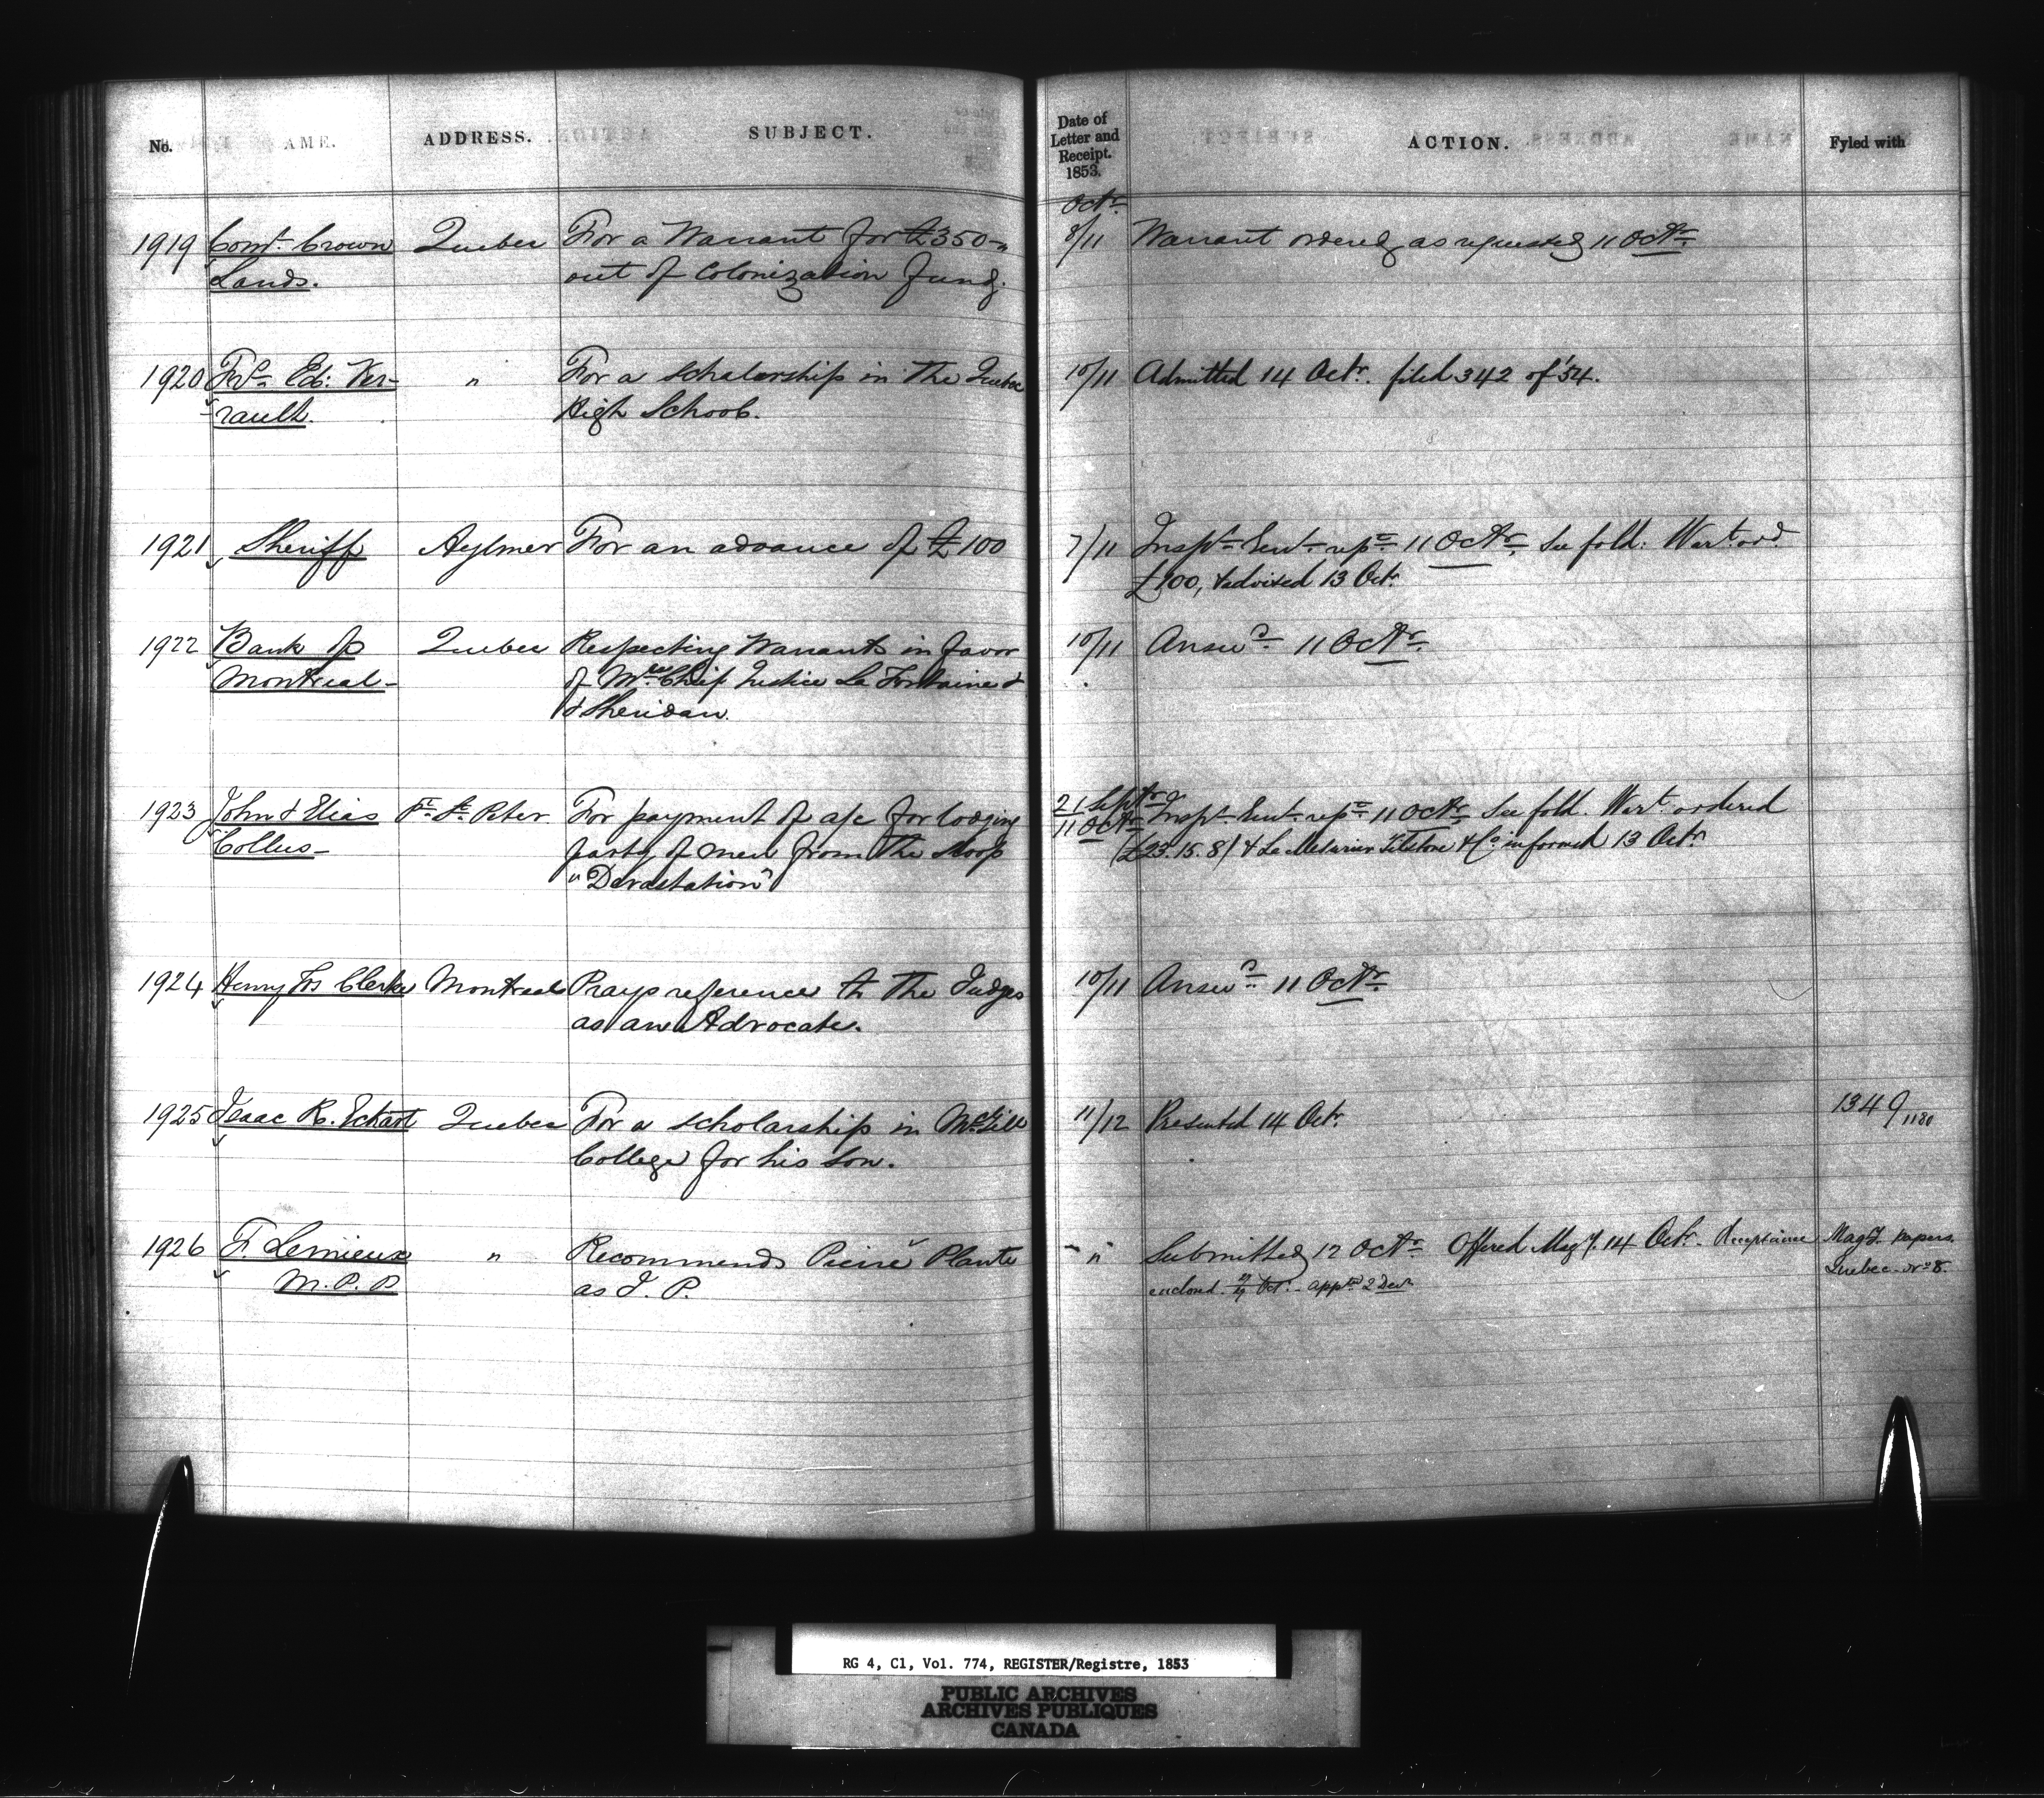 No. NAME. ADDRESS. SUBJECT. Date of Letter and Receipt. 1853. ACTION. Fyled with
Octr.
1919 Comr. Crown Quebec For a Warrant for £350 8/11 Warrant ordered as requested 11 Octr.
Lands. out of Colonization fund.
1920 Ed: Ver- " For a scholarship in the Quebec 10/11 Admitted 14 Octr. filed 342 of '54.
rault. High School.
1921 Sheriff Aylmer For an advance of £100 7/11 Inspr. Genl. repd. 11 Octr. See fold. Wart. ord.
£100, & advised 13 Octr.
1922 Bank of Quebec Respecting Warrants in favor 10/11 Answd. 11 Octr.
Montreal of Chief Justice La Fontaine &
& Sheridan.
1923 John & Elias Pt. St. Peter For payment of a/c for lodging 21 Septr. 11 Octr. Inspr. Genl. repd. 11 Octr. See fold. Wart. ordered
Collus party of men from the Sloop (£23.15.8) & Le Mesurier Tilstone & Co. informed 13 Octr.
"Devastation"
1924 Henry Clerke Montreal Prays reference to the Judges 10/11 Answd. 11 Octr.
as an Advocate.
1925 Isaac R. Eckart Quebec For a scholarship in McGill 11/12 Presented 14 Octr. 1349/1180
College for his Son.
1926 F. Lemieux " Recommends Pierre Plante " Submitted 12 Octr. Offered Magy. 14 Octr. Acceptance Magy. papers.
M.P.P. as J.P. enclosed. Oct. appd. 2 Decr. Quebec No. 8.
RG 4, C1, Vol. 774, REGISTER/Registre, 1853
PUBLIC ARCHIVES
ARCHIVES PUBLIQUES
CANADA